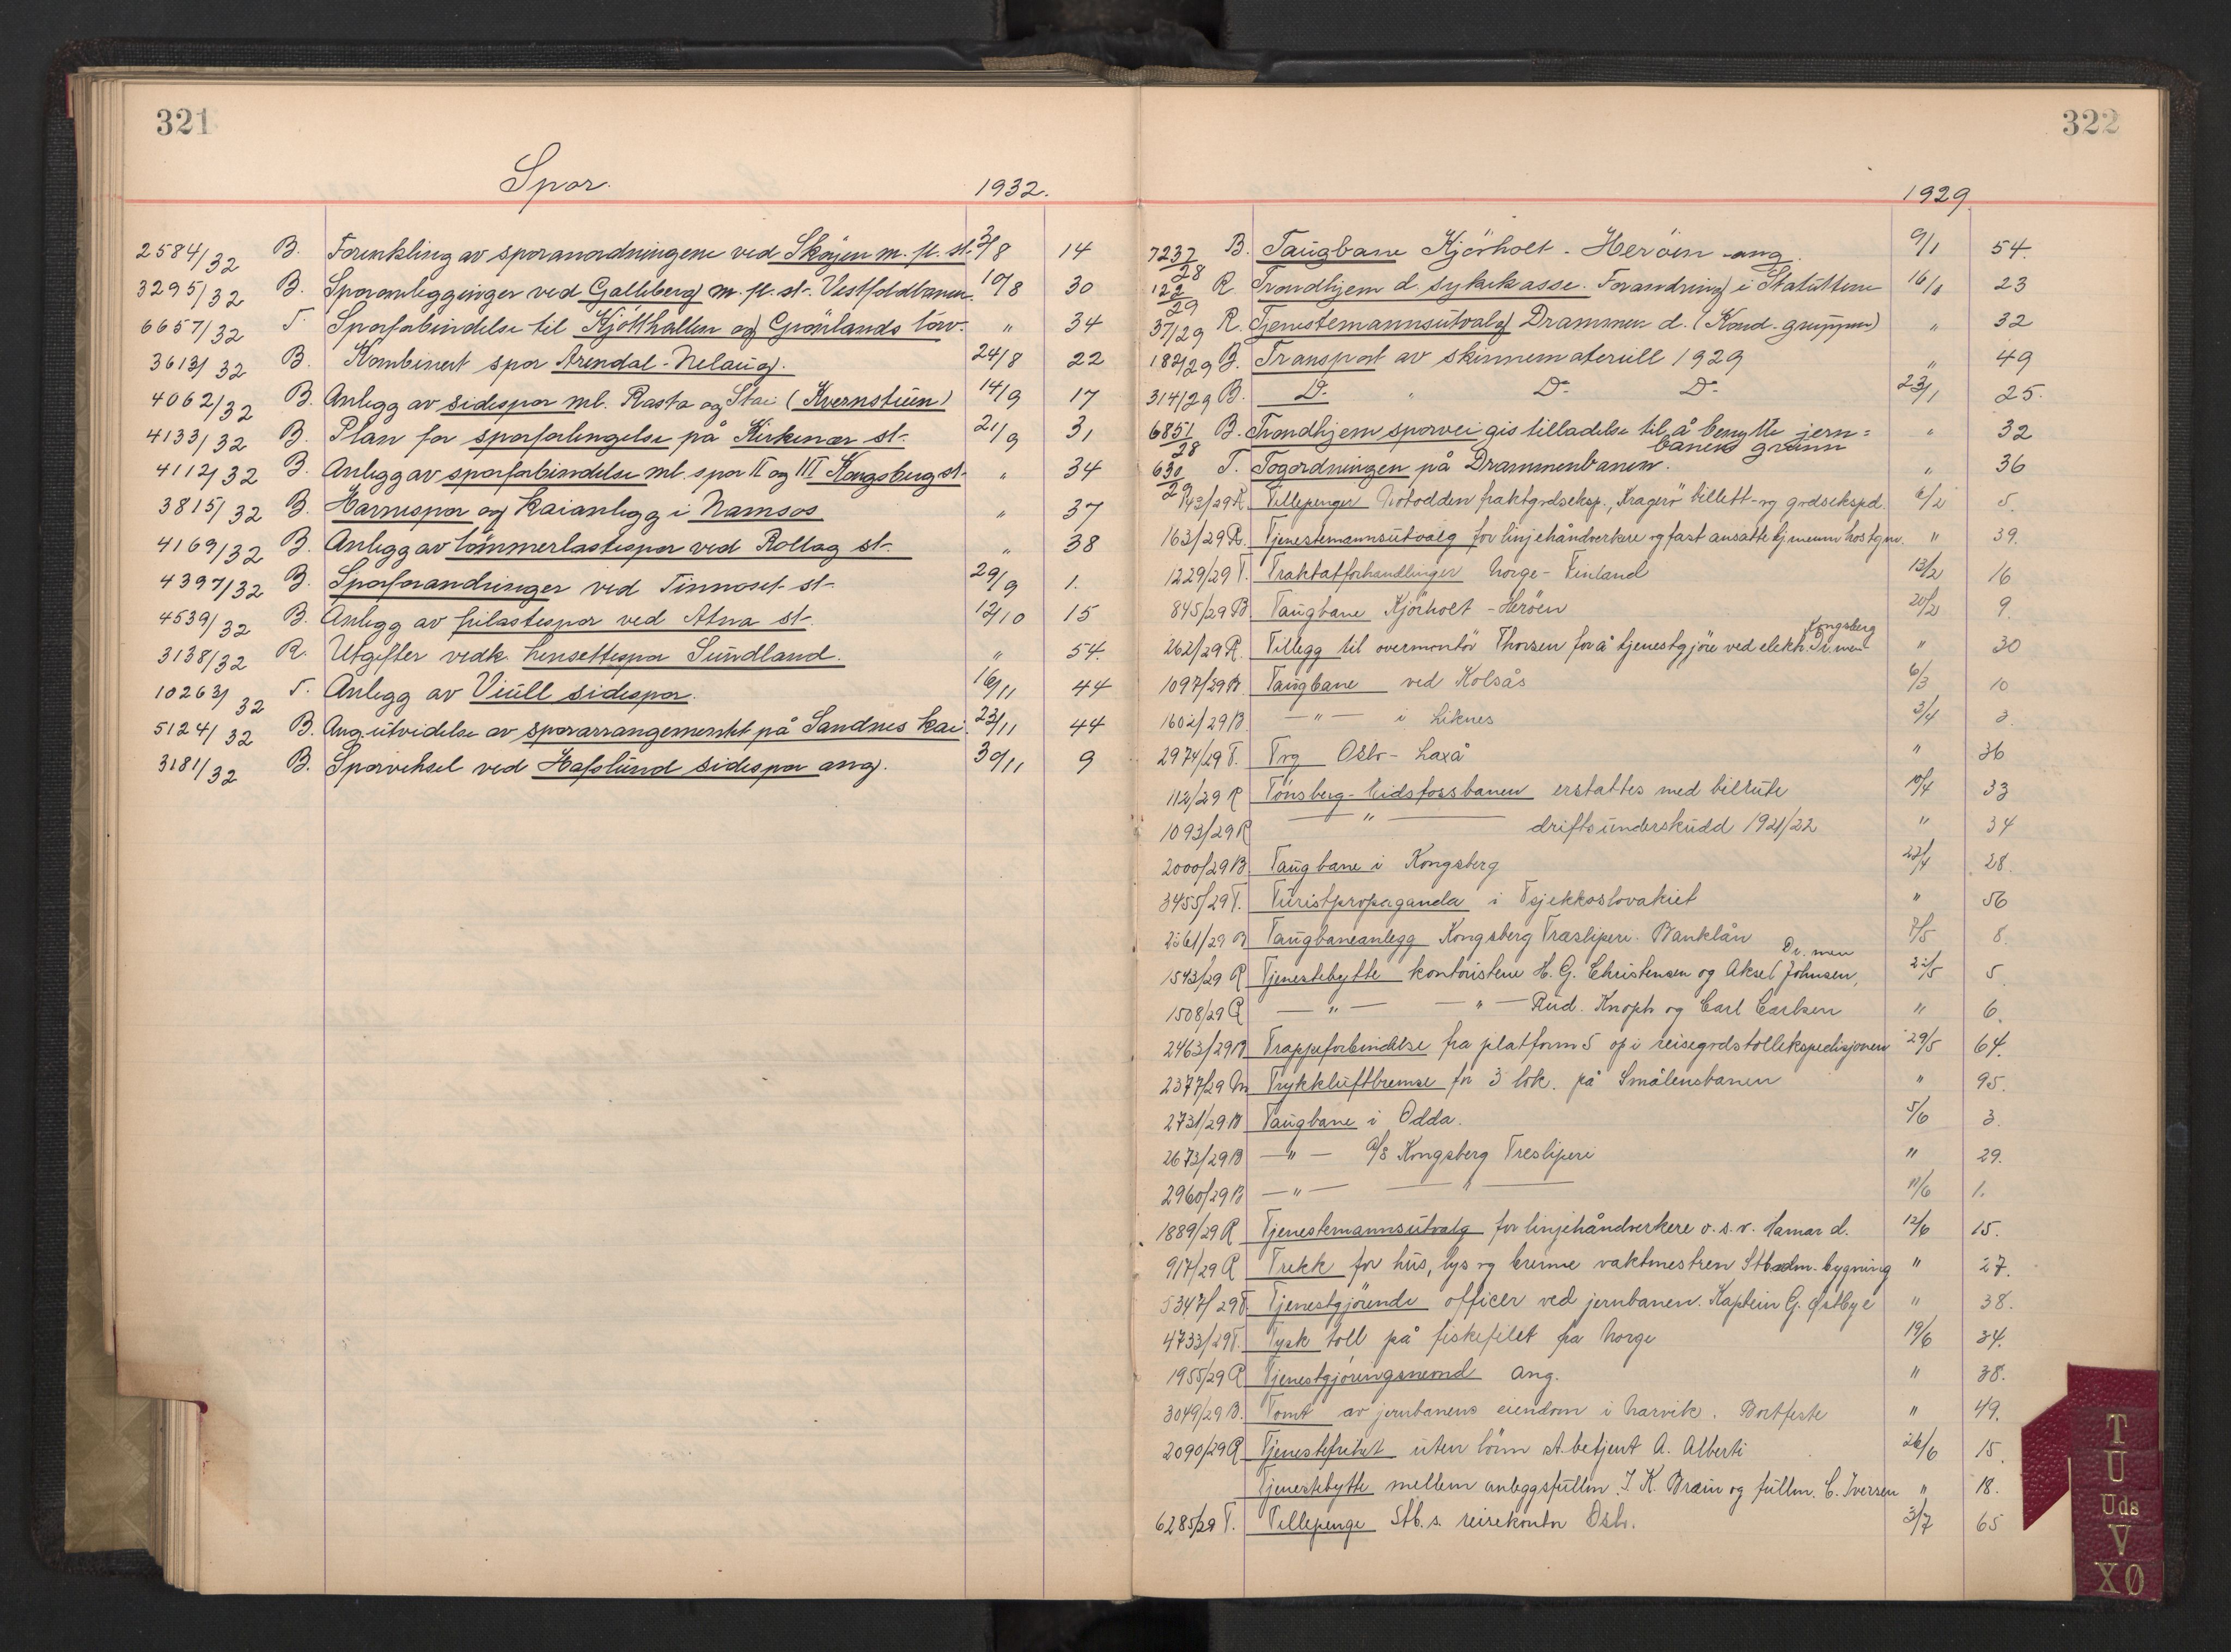 321
Spor.
1932.
2584/32 B. Forenkling av sporanordningene ved Skøyen m. fl. st. 3/8 14
3295/32 B. Sporomlegginger ved Galleberg m. fl. st. Vestfoldbanen. 10/8 30
6657/32 T. Sporforbindelse til Kjøtthallen og Grønlands torv. " 34
3613/32 B. Kombinert spor Arendal-Nelaug. 24/8 22
4062/32 B. Anlegg av sidespor ml. Rasta og Stai (Kvernstuen) 14/9 17
4133/32 B. Plan for sporforlengelse på Kirkenær st. 21/9 31
4112/32 B. Anlegg av sporforbindelse ml. spor II og III Kongsberg st. " 34
3815/32 B. Havnespor og kaianlegg i Namsos " 37
4169/32 B. Anlegg av tømmerlastespor ved Rollag st. " 38
4397/32 B. Sporforandringer ved Tinnoset st. 29/9 1.
4539/32 B. Anlegg av frilastespor ved Atna st. 12/10 15
3138/32 R. Utgifter vedk. hensettespor Sundland. " 54.
10263/32 T. Anlegg av Viull sidespor. 16/11 44
5124/32 B. Ang. utvidelse av sporarrangementet på Sandnes kai. 23/11 44
3181/32 B. Sporveksel ved Hafslund sidespor ang. 30/11 9
322
1929.
7237/28 B. Taugbane Kjørholt - Herøen ang. 9/1 54.
122/29 R Trondhjem d. sykekasse. Forandring i Statuttene 16/1 23
37/29 R. Tjenestemannsutvalg Drammen d. (Kond. gruppen) " 32
182/29 B. Transport av skinnemateriell 1929 " 49
314/29 B. Do. " Do. Do. 23/1 25.
6851/28 B. Trondhjem sporvei gis tilladelse til å benytte jern=
banens grunn " 32
630/29 T. Togordningen på Drammenbanen. " 36
143/29 R. Tellepenger Notodden fraktgodseksp., Kragerø billett- og godsekspd. 6/2 5.
163/29 R. Tjenestemannsutvalg for linjehåndverkere og fast ansatte tjmenn hos bgm. " 39.
1229/29 T. Traktatforhandlinger Norge - Finland 13/2 16
845/29 B Taugbane Kjørholt - Herøen 20/2 9.
262/29 R. Tillegg til overmontør Thorsen for å tjenestgjøre ved elektr. Dr.men Kongsberg " 30
1097/29 B. Taugbane ved Kolsås 6/3 10
1602/29 B — " — i Liknes 3/4 3.
2974/29 T. Tog Oslo - Laxå " 36
112/29 R Tønsberg-Eidsfossbanen erstattes med bilrute 10/4 33
1093/29 R — " — driftsunderskudd 1921/22 " 34
2000/29 B Taugbane i Kongsberg 22/4 28.
3455/29 T. Turistpropaganda i Tsjekkoslovakiet " 56
2561/29 B Taugbaneanlegg Kongsberg Træsliperi. Banklån 7/5 8.
1543/29 R Tjenestebytte kontoristene H. G. Christensen og Aksel Johnsen, Dr.men 22/5 5
1508/29 R — " — — " — Rud. Knoph og Carl Carlsen " 6.
2463/29 B Trappeforbindelse fra platform 5 op i reisegodstollekspedisjonen 29/5 64.
2377/29 M Trykkluftbremse for 3 lok. på Smålensbanen " 95.
2731/29 B Taugbane i Odda. 5/6 3.
2673/29 B — " — A/S Kongsberg Tresliperi " 29.
2960/29 B — " — — " — 11/6 1.
1889/29 R Tjenestemannsutvalg for linjehåndverkere o. s. v. Hamar d. 12/6 15.
917/29 R Trekk for hus, lys og brenne vaktmestren Stb. adm. bygning " 27.
5347/29 T. Tjenestgjørende officer ved jernbanen. Kaptein G. Østbye " 38.
4733/29 T. Tysk toll på fiskefilet fra Norge 19/6 34.
1955/29 R Tjenestgjøringsnemd ang. " 38.
3049/29 B. Tomt av jernbanens eiendom i Narvik. Bortfeste " 49.
2090/29 R Tjenestefrihet uten lønn st.betjent A. Alberti 26/6 15.
Tjenestebytte mellem anleggsfullm. I K. Bræin og fullm. C. Iversen " 18.
6285/29 T. Tellepenge Stb. s. reisekontor Oslo. 3/7 65
T
U
Uds
V
XØ